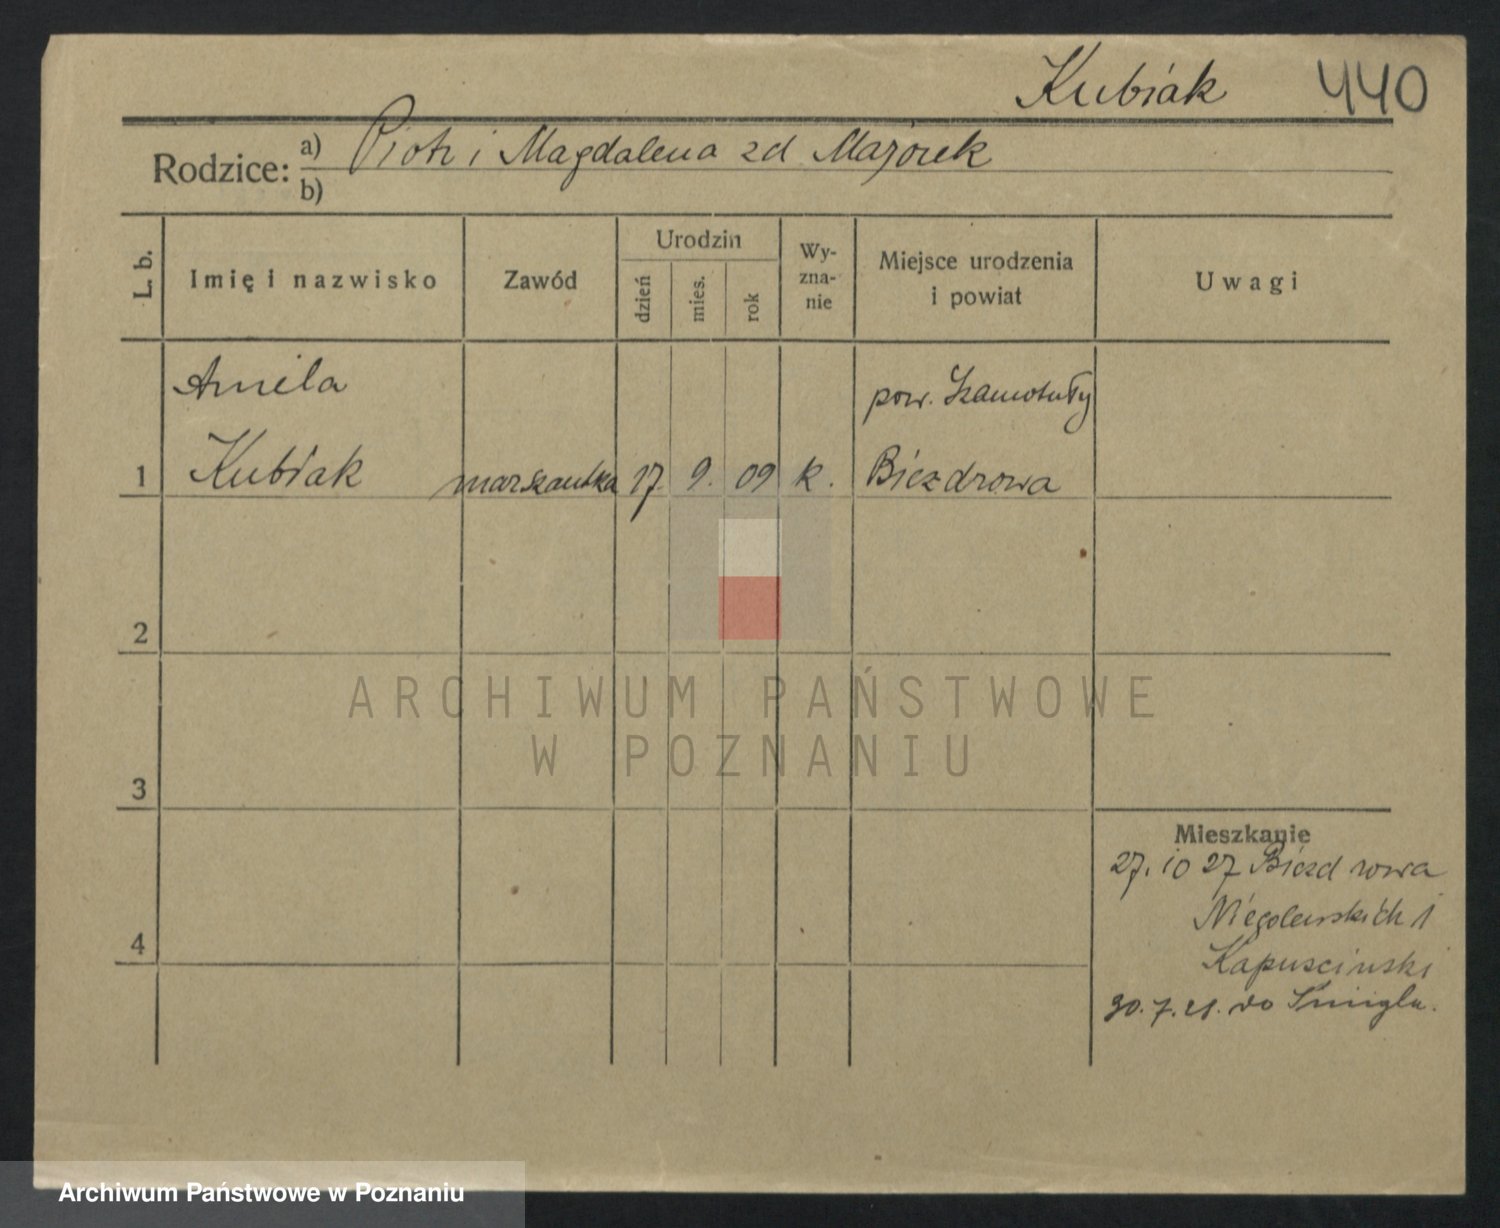 Kubiak 440
Rodzice: a) Piotr i Magdalena zd Majorek
b)
L. b.
Imię i nazwisko
Zawód
Urodzin
dzień
mies.
rok
Wy-
zna-
nie
Miejsce urodzenia
i powiat
Uwagi
Aniela
pow. Szamotuły
1 Kubiak marszantka 17 9. 09 k. Biezdrowa
2
ARCHIWUM PAŃSTWOWE
W POZNANIU
3
Mieszkanie
27. 10 27 Biezdrowa
Niegolewskich 1
Kapuscinski
4
30. 7. 28. do Śmigla.
Archiwum Państwowe w Poznaniu